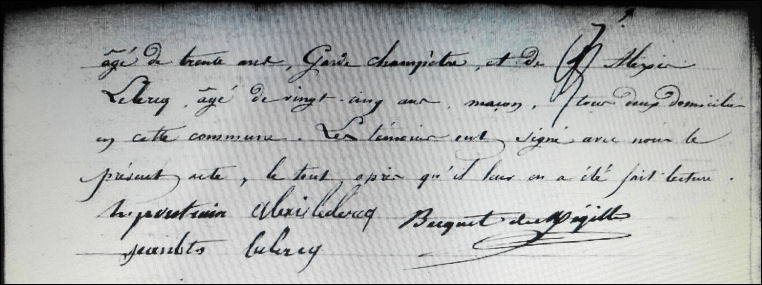 âgé de trente ans, Garde champêtre, et de Alexis
Leclercq, âgé de vingt-cinq ans, maçon, tous deux domiciliés
en cette commune. Les témoins ont signé avec nous le
présent acte, le tout après qu'il leur en a été fait lecture.
alexis leclercq Becquet de Mégille
leclercq